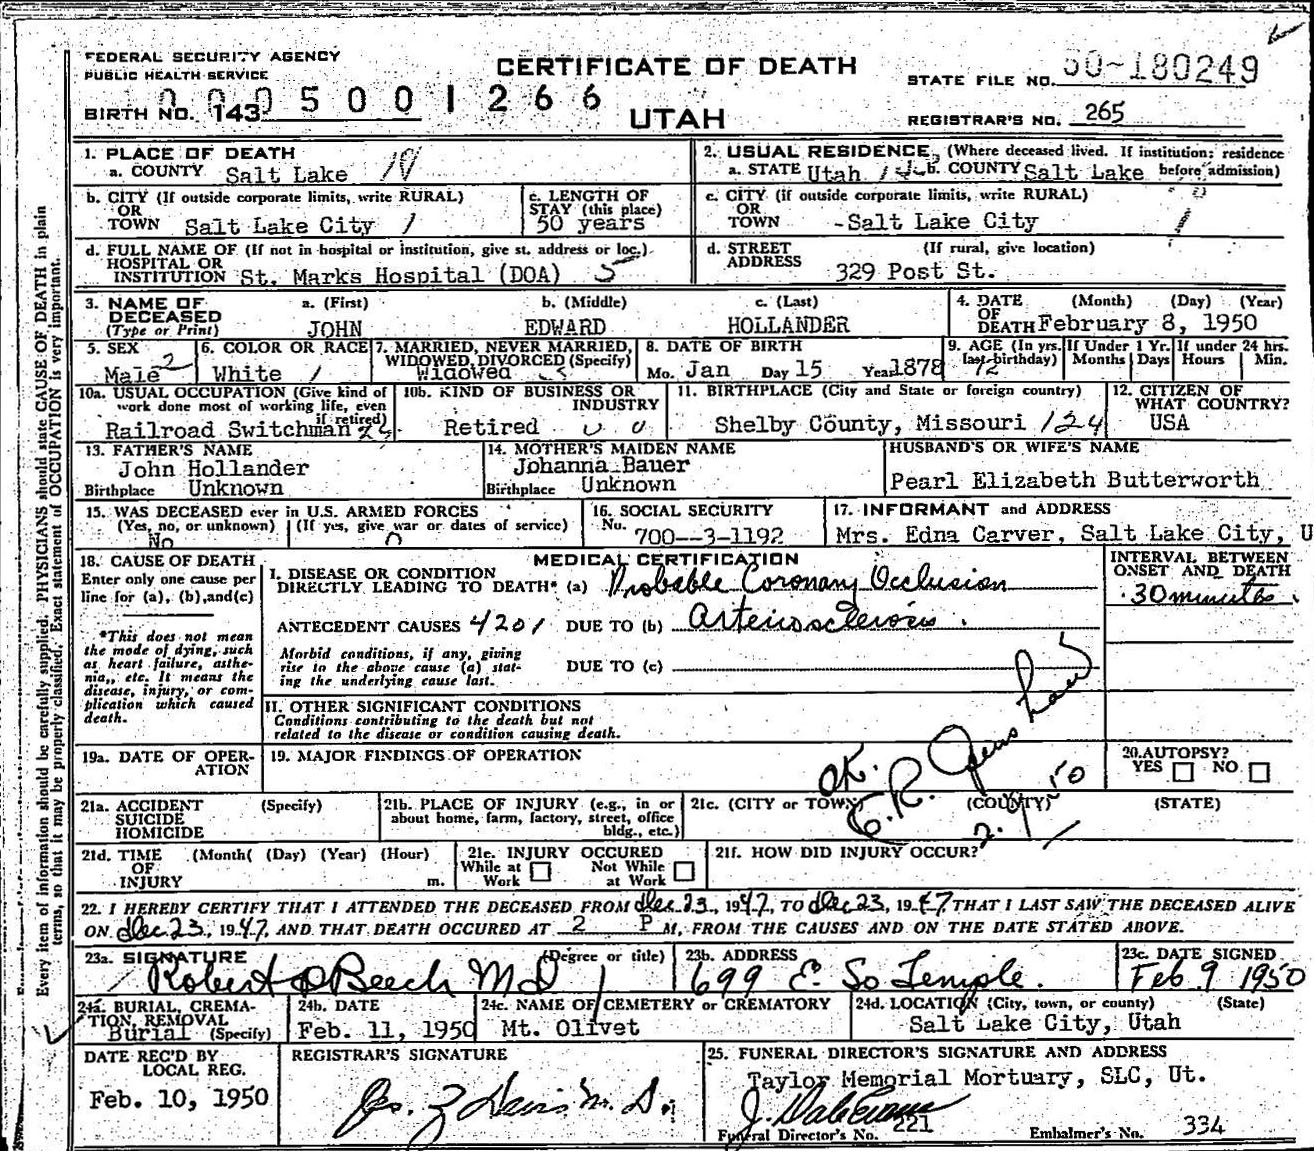 FEDERAL SECURITY AGENCY
PUBLIC HEALTH SERVICE
CERTIFICATE OF DEATH
STATE FILE NO. 50-180249
0005001266
BIRTH NO. 143
UTAH
REGISTRAR'S NO. 265
1. PLACE OF DEATH
a. COUNTY Salt Lake
2. USUAL RESIDENCE, (Where deceased lived. If institution; residence before admission)
a. STATE Utah b. COUNTY Salt Lake
b. CITY (If outside corporate limits, write RURAL)
OR
TOWN Salt Lake City 1
c. LENGTH OF
STAY (this place)
50 years
c. CITY (if outside corporate limits, write RURAL)
OR
TOWN -Salt Lake City
d. FULL NAME OF (If not in hospital or institution, give st. address or loc.)
HOSPITAL OR
INSTITUTION St. Marks Hospital (DOA) 5
d. STREET (If rural, give location)
ADDRESS
329 Post St.
3. NAME OF
DECEASED
(Type or Print)
a. (First) b. (Middle) c. (Last)
JOHN EDWARD HOLLANDER
4. DATE (Month) (Day) (Year)
OF
DEATH February 8, 1950
5. SEX 2
Male
6. COLOR OR RACE
White 1
7. MARRIED, NEVER MARRIED,
WIDOWED, DIVORCED (Specify)
Widowed
8. DATE OF BIRTH
Mo. Jan Day 15 Year 1878
9. AGE (In yrs. last birthday) 72
If Under 1 Yr. Months Days
If under 24 hrs. Hours Min.
10a. USUAL OCCUPATION (Give kind of
work done most of working life, even
if retired)
Railroad Switchman
10b. KIND OF BUSINESS OR
INDUSTRY
Retired
11. BIRTHPLACE (City and State or foreign country)
Shelby County, Missouri 124
12. CITIZEN OF
WHAT COUNTRY?
USA
13. FATHER'S NAME
John Hollander
Birthplace Unknown
14. MOTHER'S MAIDEN NAME
Johanna Bauer
Birthplace Unknown
HUSBAND'S OR WIFE'S NAME
Pearl Elizabeth Butterworth
15. WAS DECEASED ever in U.S. ARMED FORCES
(Yes, no, or unknown) (If yes, give war or dates of service)
No 0
16. SOCIAL SECURITY
No.
700--3-1192
17. INFORMANT and ADDRESS
Mrs. Edna Carver, Salt Lake City, U
18. CAUSE OF DEATH
Enter only one cause per
line for (a), (b), and (c)
*This does not mean
the mode of dying, such
as heart failure, asthe-
nia,, etc. It means the
disease, injury, or com-
plication which caused
death.
MEDICAL CERTIFICATION
I. DISEASE OR CONDITION
DIRECTLY LEADING TO DEATH* (a) Probable Coronary Occlusion
ANTECEDENT CAUSES 4201 DUE TO (b) Arteriosclerosis.
Morbid conditions, if any, giving
rise to the above cause (a) stat-
ing the underlying cause last.
DUE TO (c)
INTERVAL BETWEEN
ONSET AND DEATH
30 minutes.
II. OTHER SIGNIFICANT CONDITIONS
Conditions contributing to the death but not
related to the disease or condition causing death.
19a. DATE OF OPER-
ATION
19. MAJOR FINDINGS OF OPERATION
20. AUTOPSY?
YES NO
OK.
21a. ACCIDENT
SUICIDE
HOMICIDE
(Specify)
21b. PLACE OF INJURY (e.g., in or
about home, farm, factory, street, office
bldg., etc.)
21c. (CITY or TOWN) (COUNTY) (STATE)
21d. TIME (Month( (Day) (Year) (Hour)
OF
INJURY m.
21e. INJURY OCCURED
While at Work
Not While at Work
21f. HOW DID INJURY OCCUR?
22. I HEREBY CERTIFY THAT I ATTENDED THE DECEASED FROM Dec 23, 1947, TO Dec 23, 1947 THAT I LAST SAW THE DECEASED ALIVE
ON Dec 23, 1947, AND THAT DEATH OCCURED AT 2 P M, FROM THE CAUSES AND ON THE DATE STATED ABOVE.
23a. SIGNATURE (Degree or title)
Robert D Beech M D
23b. ADDRESS
699 E. So Temple.
23c. DATE SIGNED
Feb 9 1950
24a. BURIAL, CREMA-
TION, REMOVAL
Burial (Specify)
24b. DATE
Feb. 11, 1950
24c. NAME OF CEMETERY or CREMATORY
Mt. Olivet
24d. LOCATION (City, town, or county) (State)
Salt Lake City, Utah
DATE REC'D BY
LOCAL REG.
Feb. 10, 1950
REGISTRAR'S SIGNATURE
25. FUNERAL DIRECTOR'S SIGNATURE AND ADDRESS
Taylor Memorial Mortuary, SLC, Ut.
J. Dale Evans
Funeral Director's No. 221 Embalmer's No. 334
Every item of information should be carefully supplied. PHYSICIANS should state CAUSE OF DEATH in plain
terms, so that it may be properly classified. Exact statement of OCCUPATION is very important.